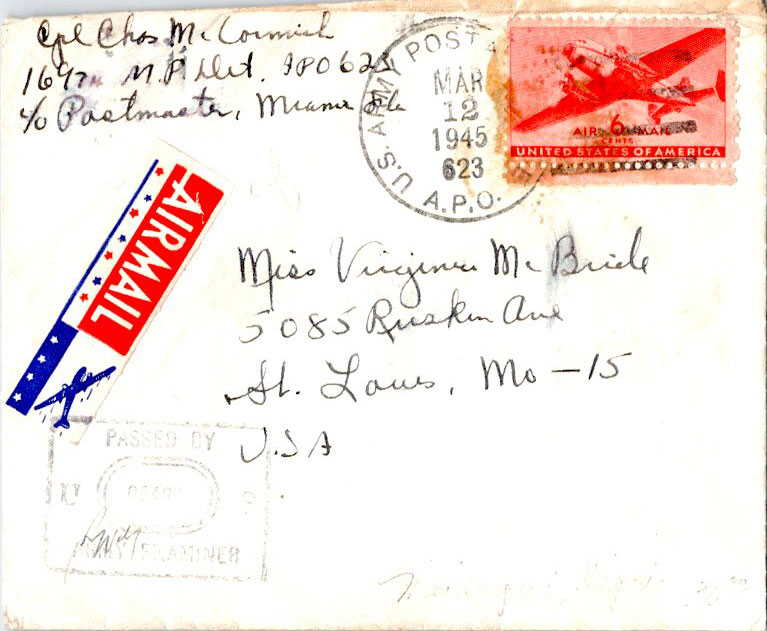 Cpl Chas McCormick
1697 M.P. Det. APO 62
c/o Postmaster, Miami Fla
U.S. ARMY POST
MAR
12
1945
623
A.P.O.
6
AIR MAIL
CENTS
UNITED STATES OF AMERICA
AIR MAIL
Miss Virginia McBride
5085 Ruskin Ave
St. Louis, Mo - 15
U.S.A
PASSED BY
ARMY EXAMINER